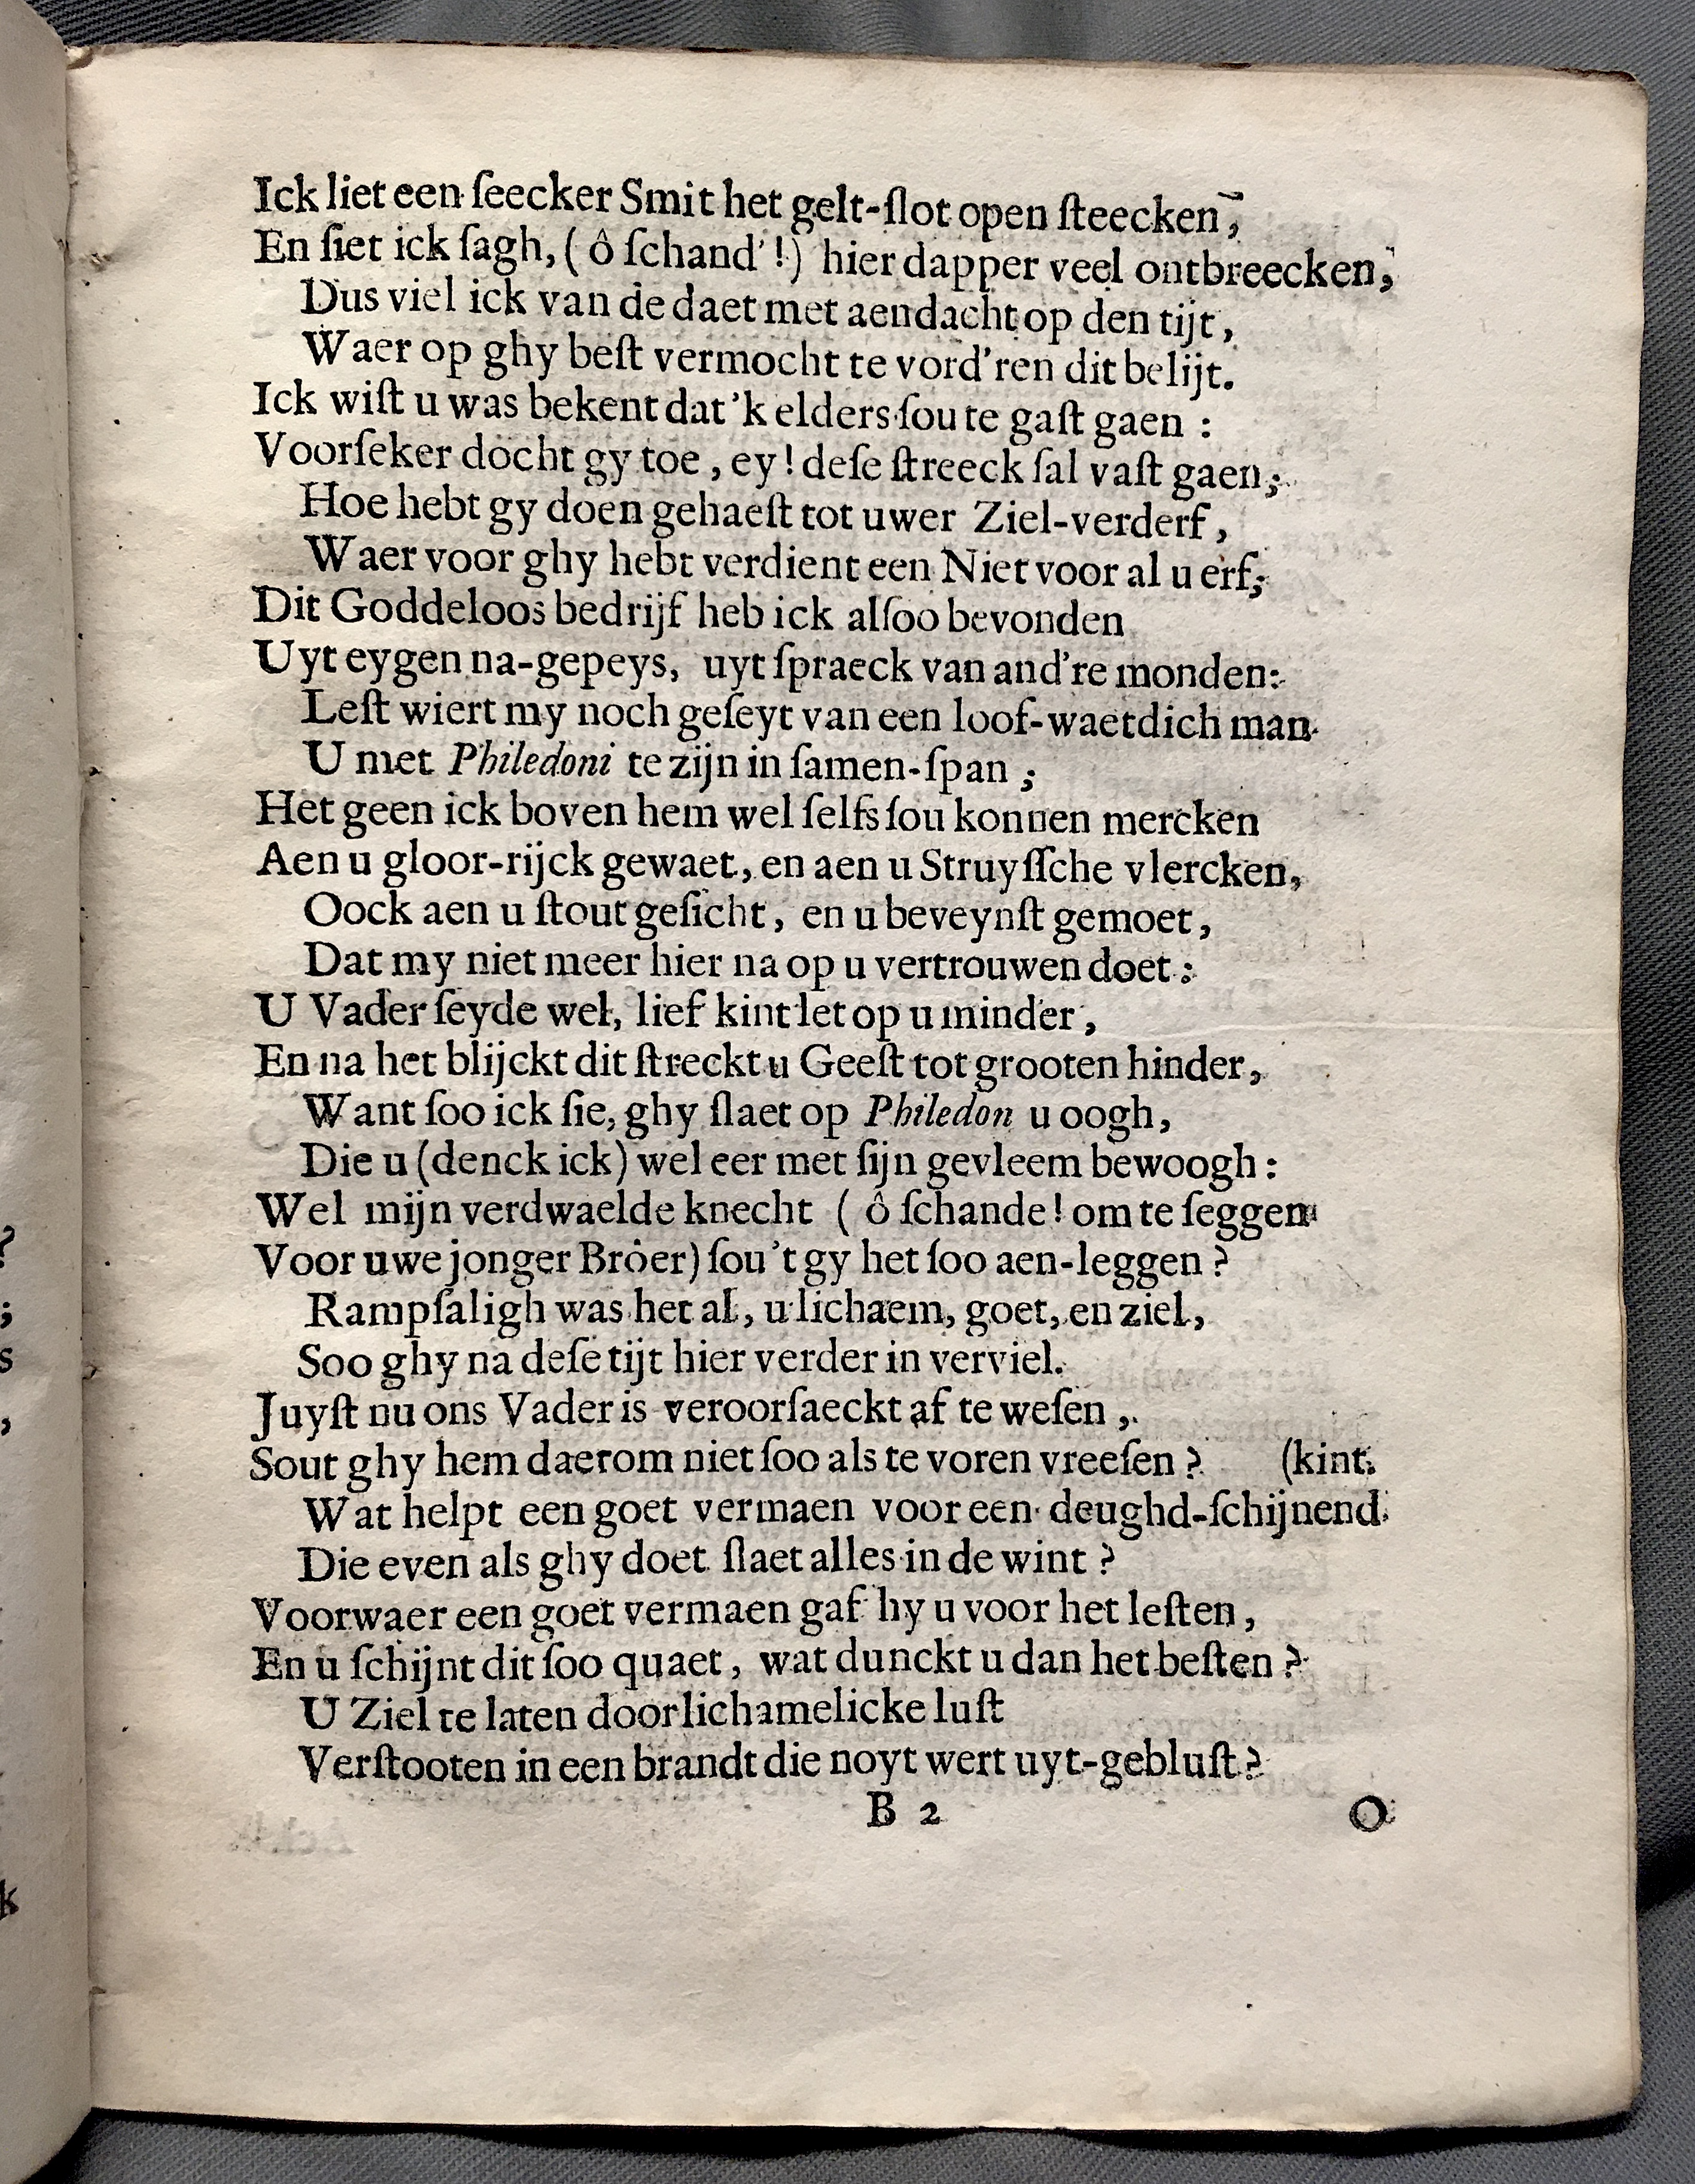 Ick liet een ſeecker Smit het gelt-ſlot open ſteecken,
En ſiet ick ſagh, ( ô ſchand'!) hier dapper veel ontbreecken,
Dus viel ick van de daet met aendacht op den tijt,
Waer op ghy beſt vermocht te vord'ren dit belijt.
Ick wiſt u was bekent dat 'k elders ſou te gaſt gaen :
Voorſeker docht gy toe, ey! deſe ſtreeck ſal vaſt gaen;
Hoe hebt gy doen gehaeſt tot uwer Ziel-verderf,
Waer voor ghy hebt verdient een Niet voor al u erf;
Dit Goddeloos bedrijf heb ick alſoo bevonden
Uyt eygen na-gepeys, uyt ſpraeck van and're monden:
Leſt wiert my noch geſeyt van een loof-waetdich man
U met Philedoni te zijn in ſamen-ſpan ;
Het geen ick boven hem wel ſelfs ſou konnen mercken
Aen u gloor-rijck gewaet, en aen u Struyſſche vlercken,
Oock aen u ſtout geſicht, en u beveynſt gemoet,
Dat my niet meer hier na op u vertrouwen doet :
U Vader ſeyde wel, lief kint let op u minder,
En na het blijckt dit ſtreckt u Geeſt tot grooten hinder,
Want ſoo ick ſie, ghy ſlaet op Philedon u oogh,
Die u (denck ick) wel eer met ſijn gevleem bewoogh :
Wel mijn verdwaelde knecht ( ô ſchande! om te ſeggen
Voor uwe jonger Broer) ſou't gy het ſoo aen-leggen ?
Rampſaligh was het al, u lichaem, goet, en ziel,
Soo ghy na deſe tijt hier verder in verviel.
Juyſt nu ons Vader is veroorſaeckt af te weſen,
Sout ghy hem daerom niet ſoo als te voren vreeſen ? (kint
Wat helpt een goet vermaen voor een deughd-ſchijnend
Die even als ghy doet ſlaet alles in de wint ?
Voorwaer een goet vermaen gaf hy u voor het leſten,
En u ſchijnt dit ſoo quaet, wat dunckt u dan het beſten ?
U Ziel te laten door lichamelicke luſt
Verſtooten in een brandt die noyt wert uyt-gebluſt ?
B 2 O